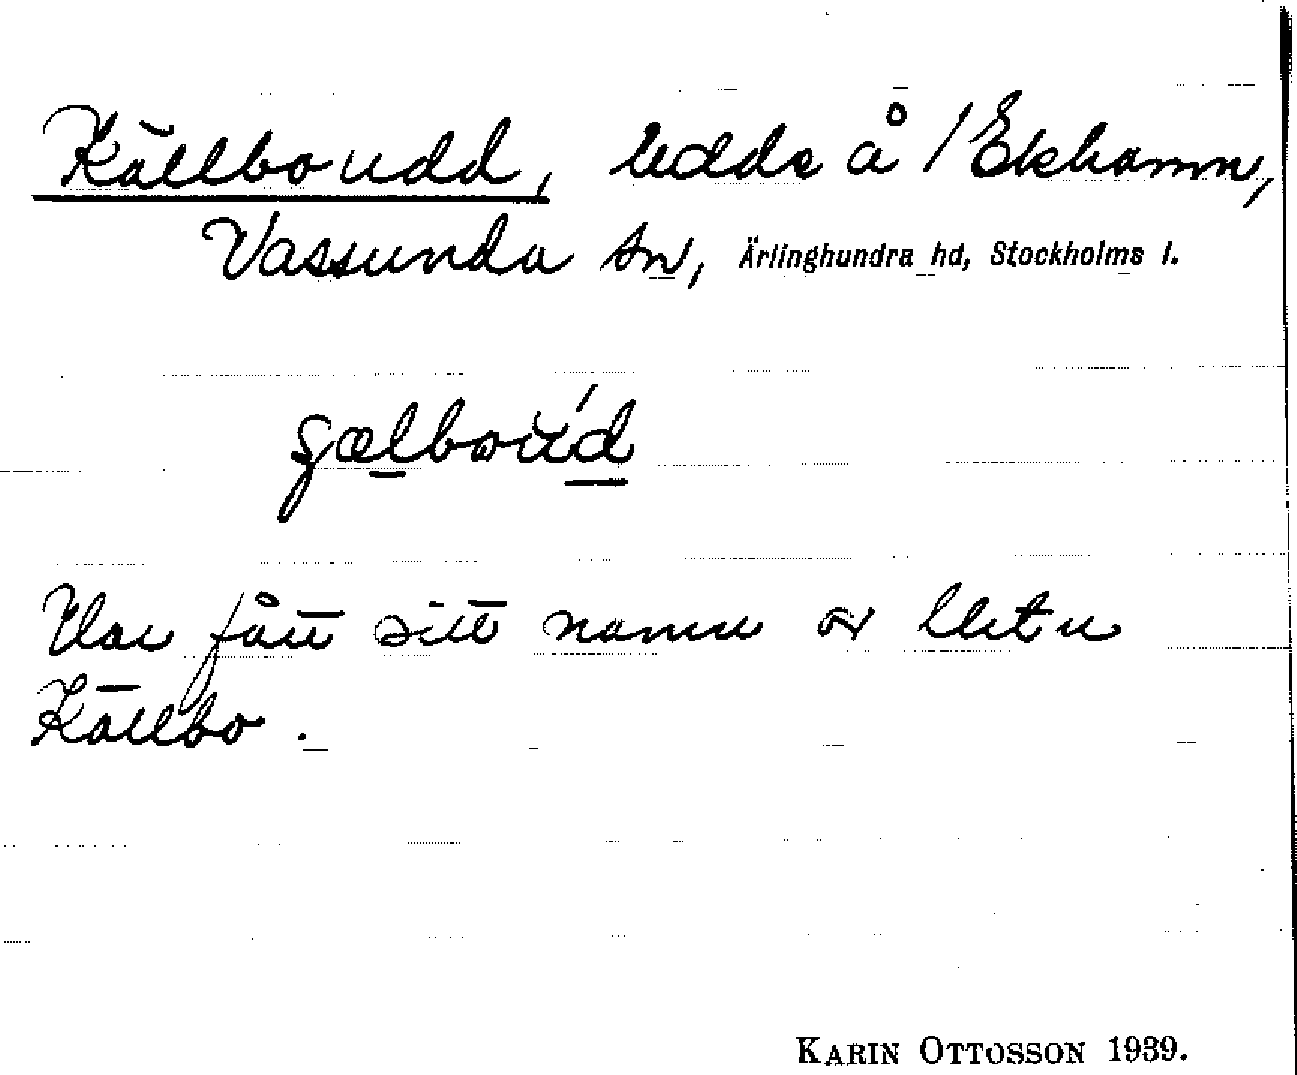 Källboudd, udde å /Ekhamn,
Vassunda sn, Ärlinghundra hd, Stockholms l.
Har fått sitt namn av
Källbo.
KARIN OTTOSSON 1939.